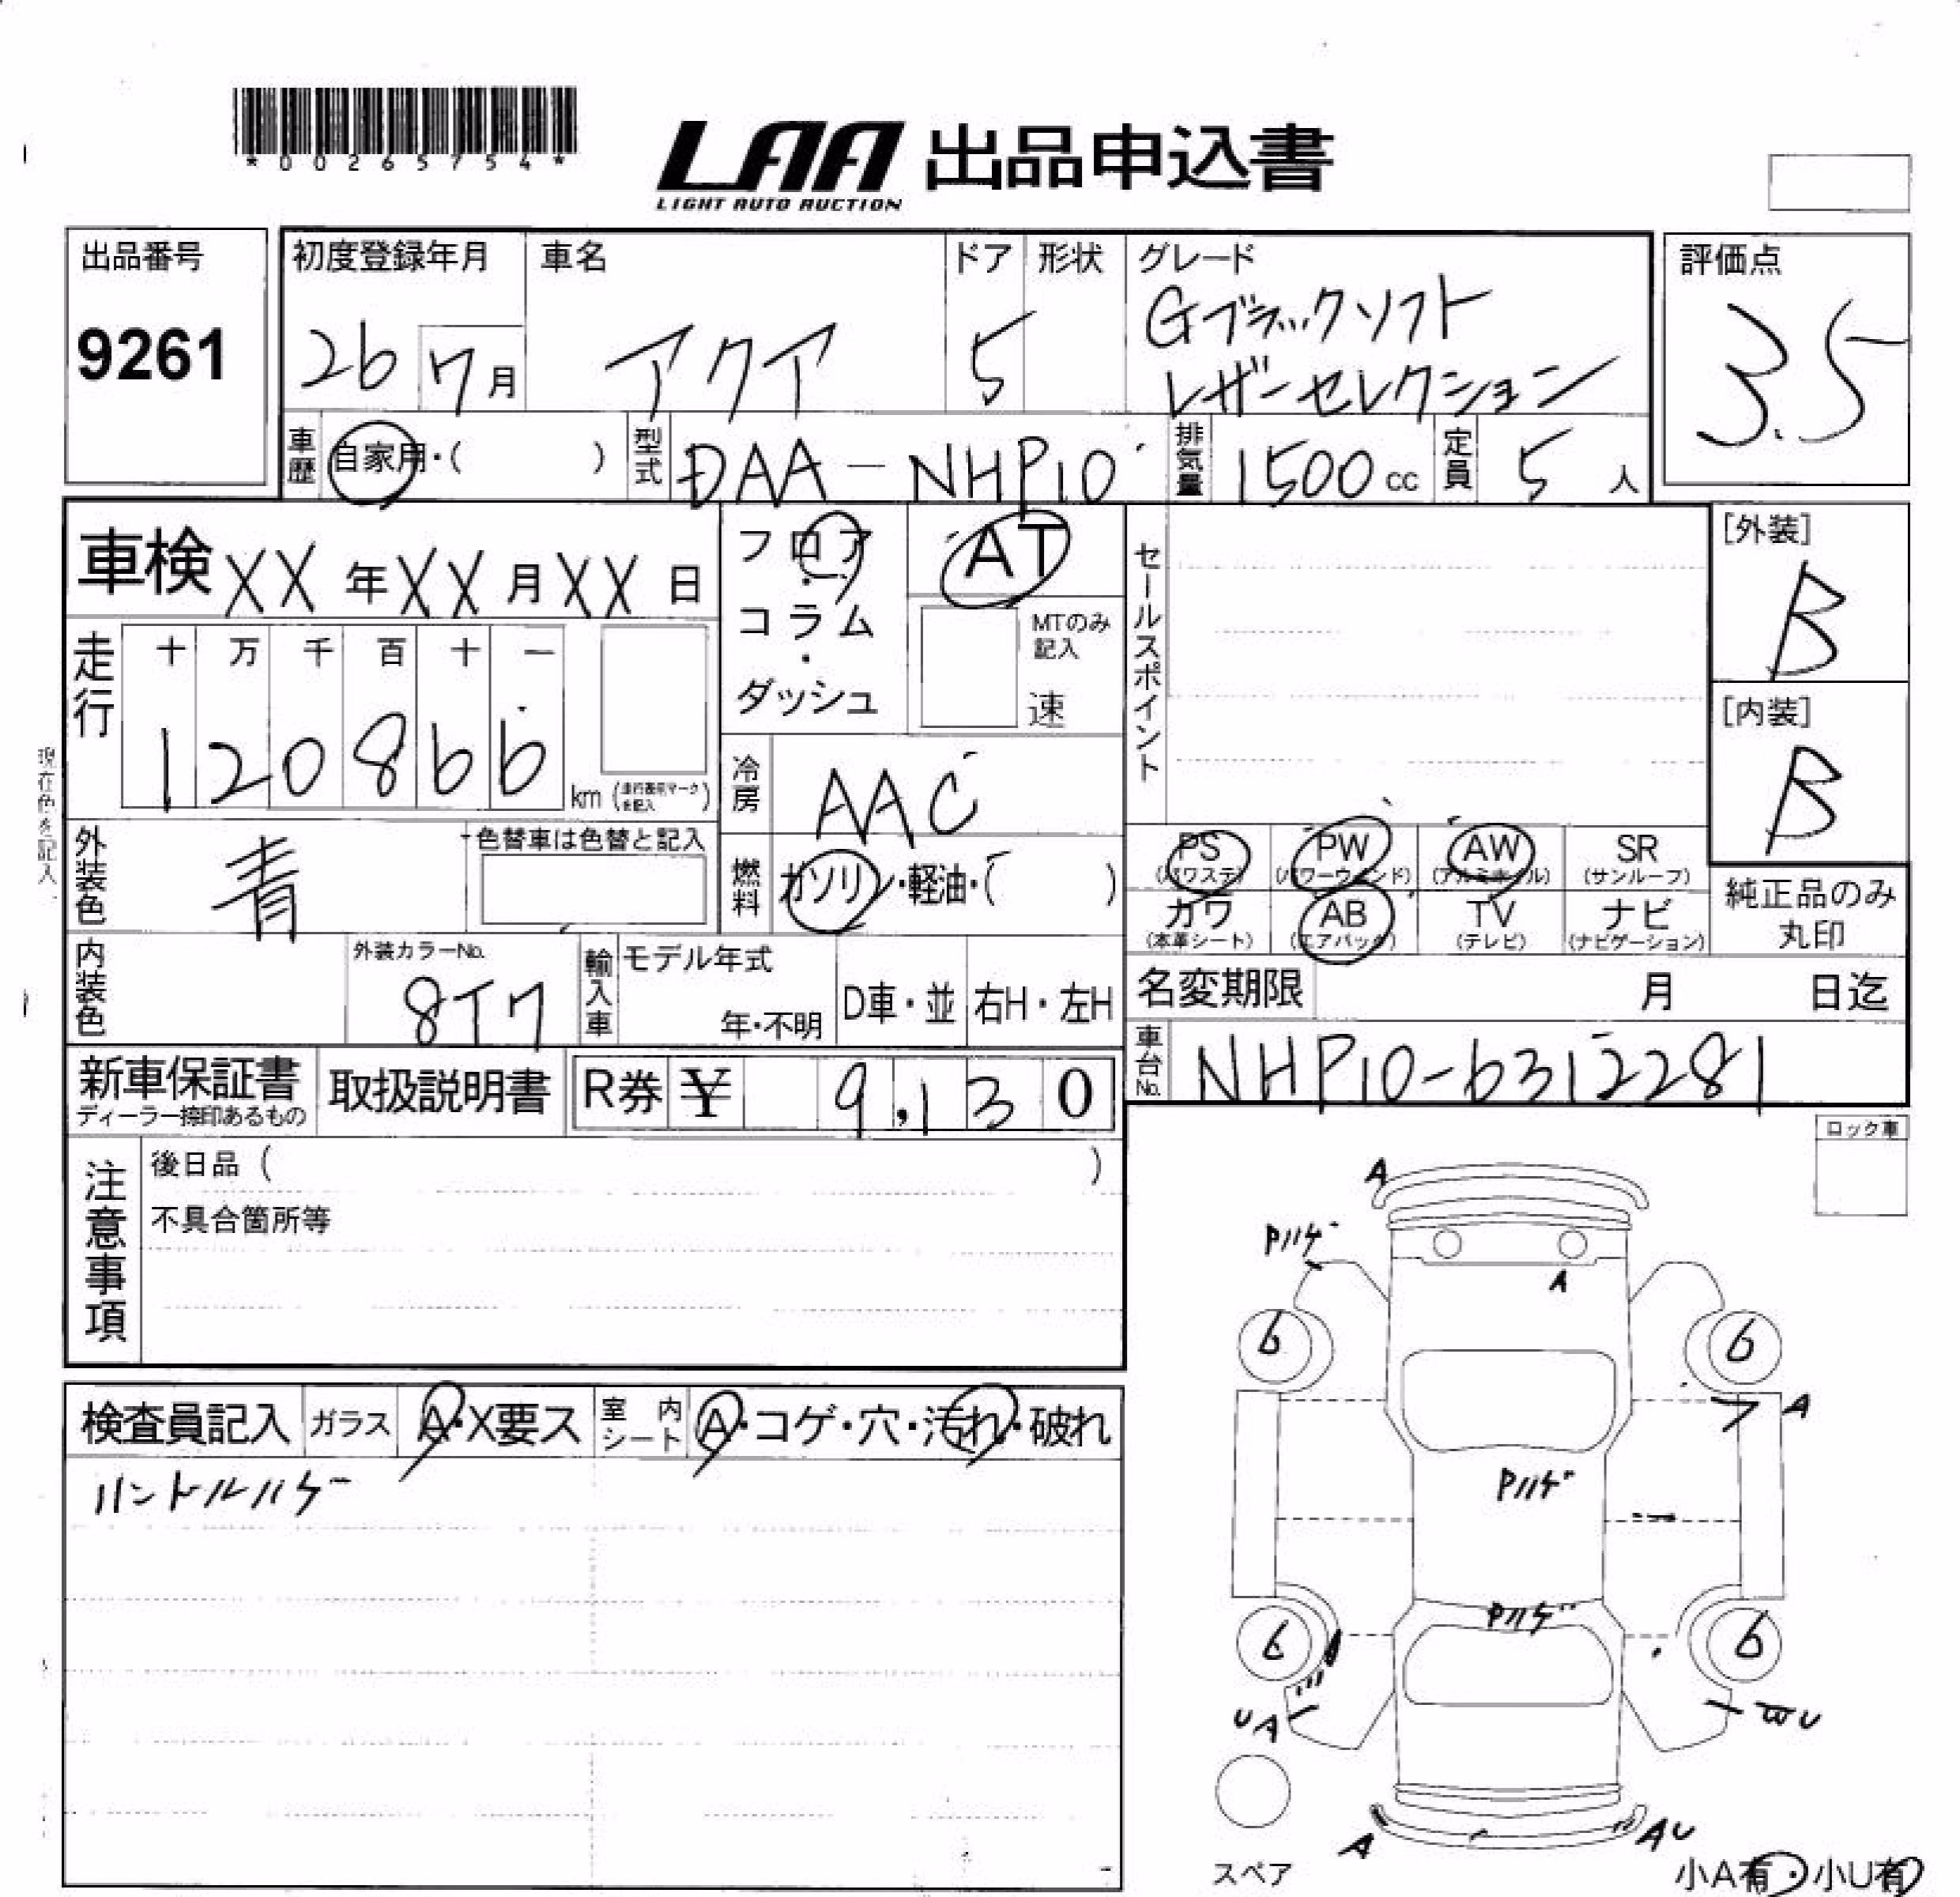 *00265754*
LAA 出品申込書
LIGHT AUTO AUCTION
出品番号
9261
初度登録年月
26 7月
車名
アクア
ドア
5
形状
グレード
Gブラックソフト
レザーセレクション
評価点
3.5
車歴 自家用・( )
型式 DAA-NHP10
排気量 1500cc
定員 5人
車検 XX年XX月XX日
フロア
・
コラム
・
ダッシュ
AT
MTのみ
記入
速
セールスポイント
[外装]
B
[内装]
B
走行
十 万 千 百 十 一
1 2 0 8 6 6 km (走行表示マークを記入)
現在色を記入
冷房 AAC
外装色 青
色替車は色替と記入
燃料 ガソリン・軽油・( )
PS
(パワステ)
PW
(パワーウィンド)
AW
(アルミホイル)
SR
(サンルーフ)
カワ
(本革シート)
AB
(エアバック)
TV
(テレビ)
ナビ
(ナビゲーション)
純正品のみ
丸印
内装色
外装カラーNo.
8T7
輸入車
モデル年式
年・不明
D車・並
右H・左H
名変期限 月 日迄
車台No. NHP10-6312281
新車保証書
ディーラー捺印あるもの
取扱説明書
R券 ¥ 9,130
ロック車
注意事項
後日品 ( )
不具合箇所等
検査員記入
ガラス A・X要ス
室内シート A・コゲ・穴・汚れ・破れ
ハンドルハゲ
A
Pハゲ
A
6
6
A
Pハゲ
Pハゲ
6
6
UA
WU
A
AU
スペア
小A有・小U有